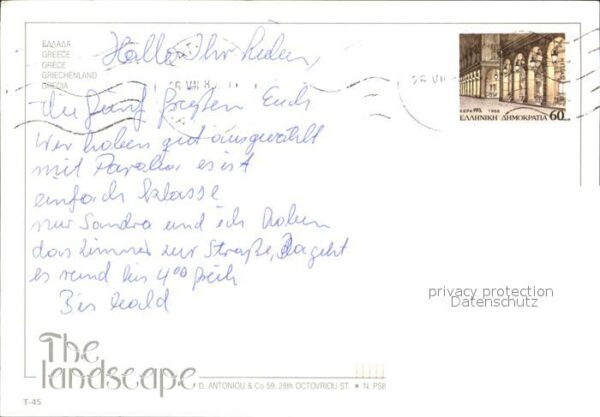 Hallo Ihr Lieben,
ΕΛΛΑΔΑ
GREECE
GRÈCE
GRIECHENLAND
GRECIA
ΚΕΡΚΥΡΑ 1988
ΕΛΛΗΝΙΚΗ ΔΗΜΟΚΡΑΤΙΑ 60
die fünf grüßen Euch
Wir haben gut ausgewählt
mit Paralia, es ist
einfach klasse
nur Sandra und ich haben
das Zimmer zur Straße, da geht
es rund bis 4⁰⁰ früh
Bis bald
privacy protection
Datenschutz
The
landscape
D. ANTONIOU & Co 59, 28th OCTOVRIOU ST. • N. PSI
T-45